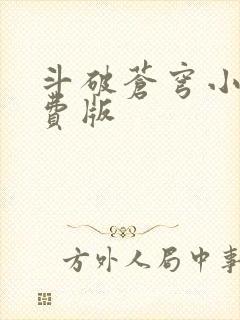 斗破蒼穹小
費版
方外人局中事